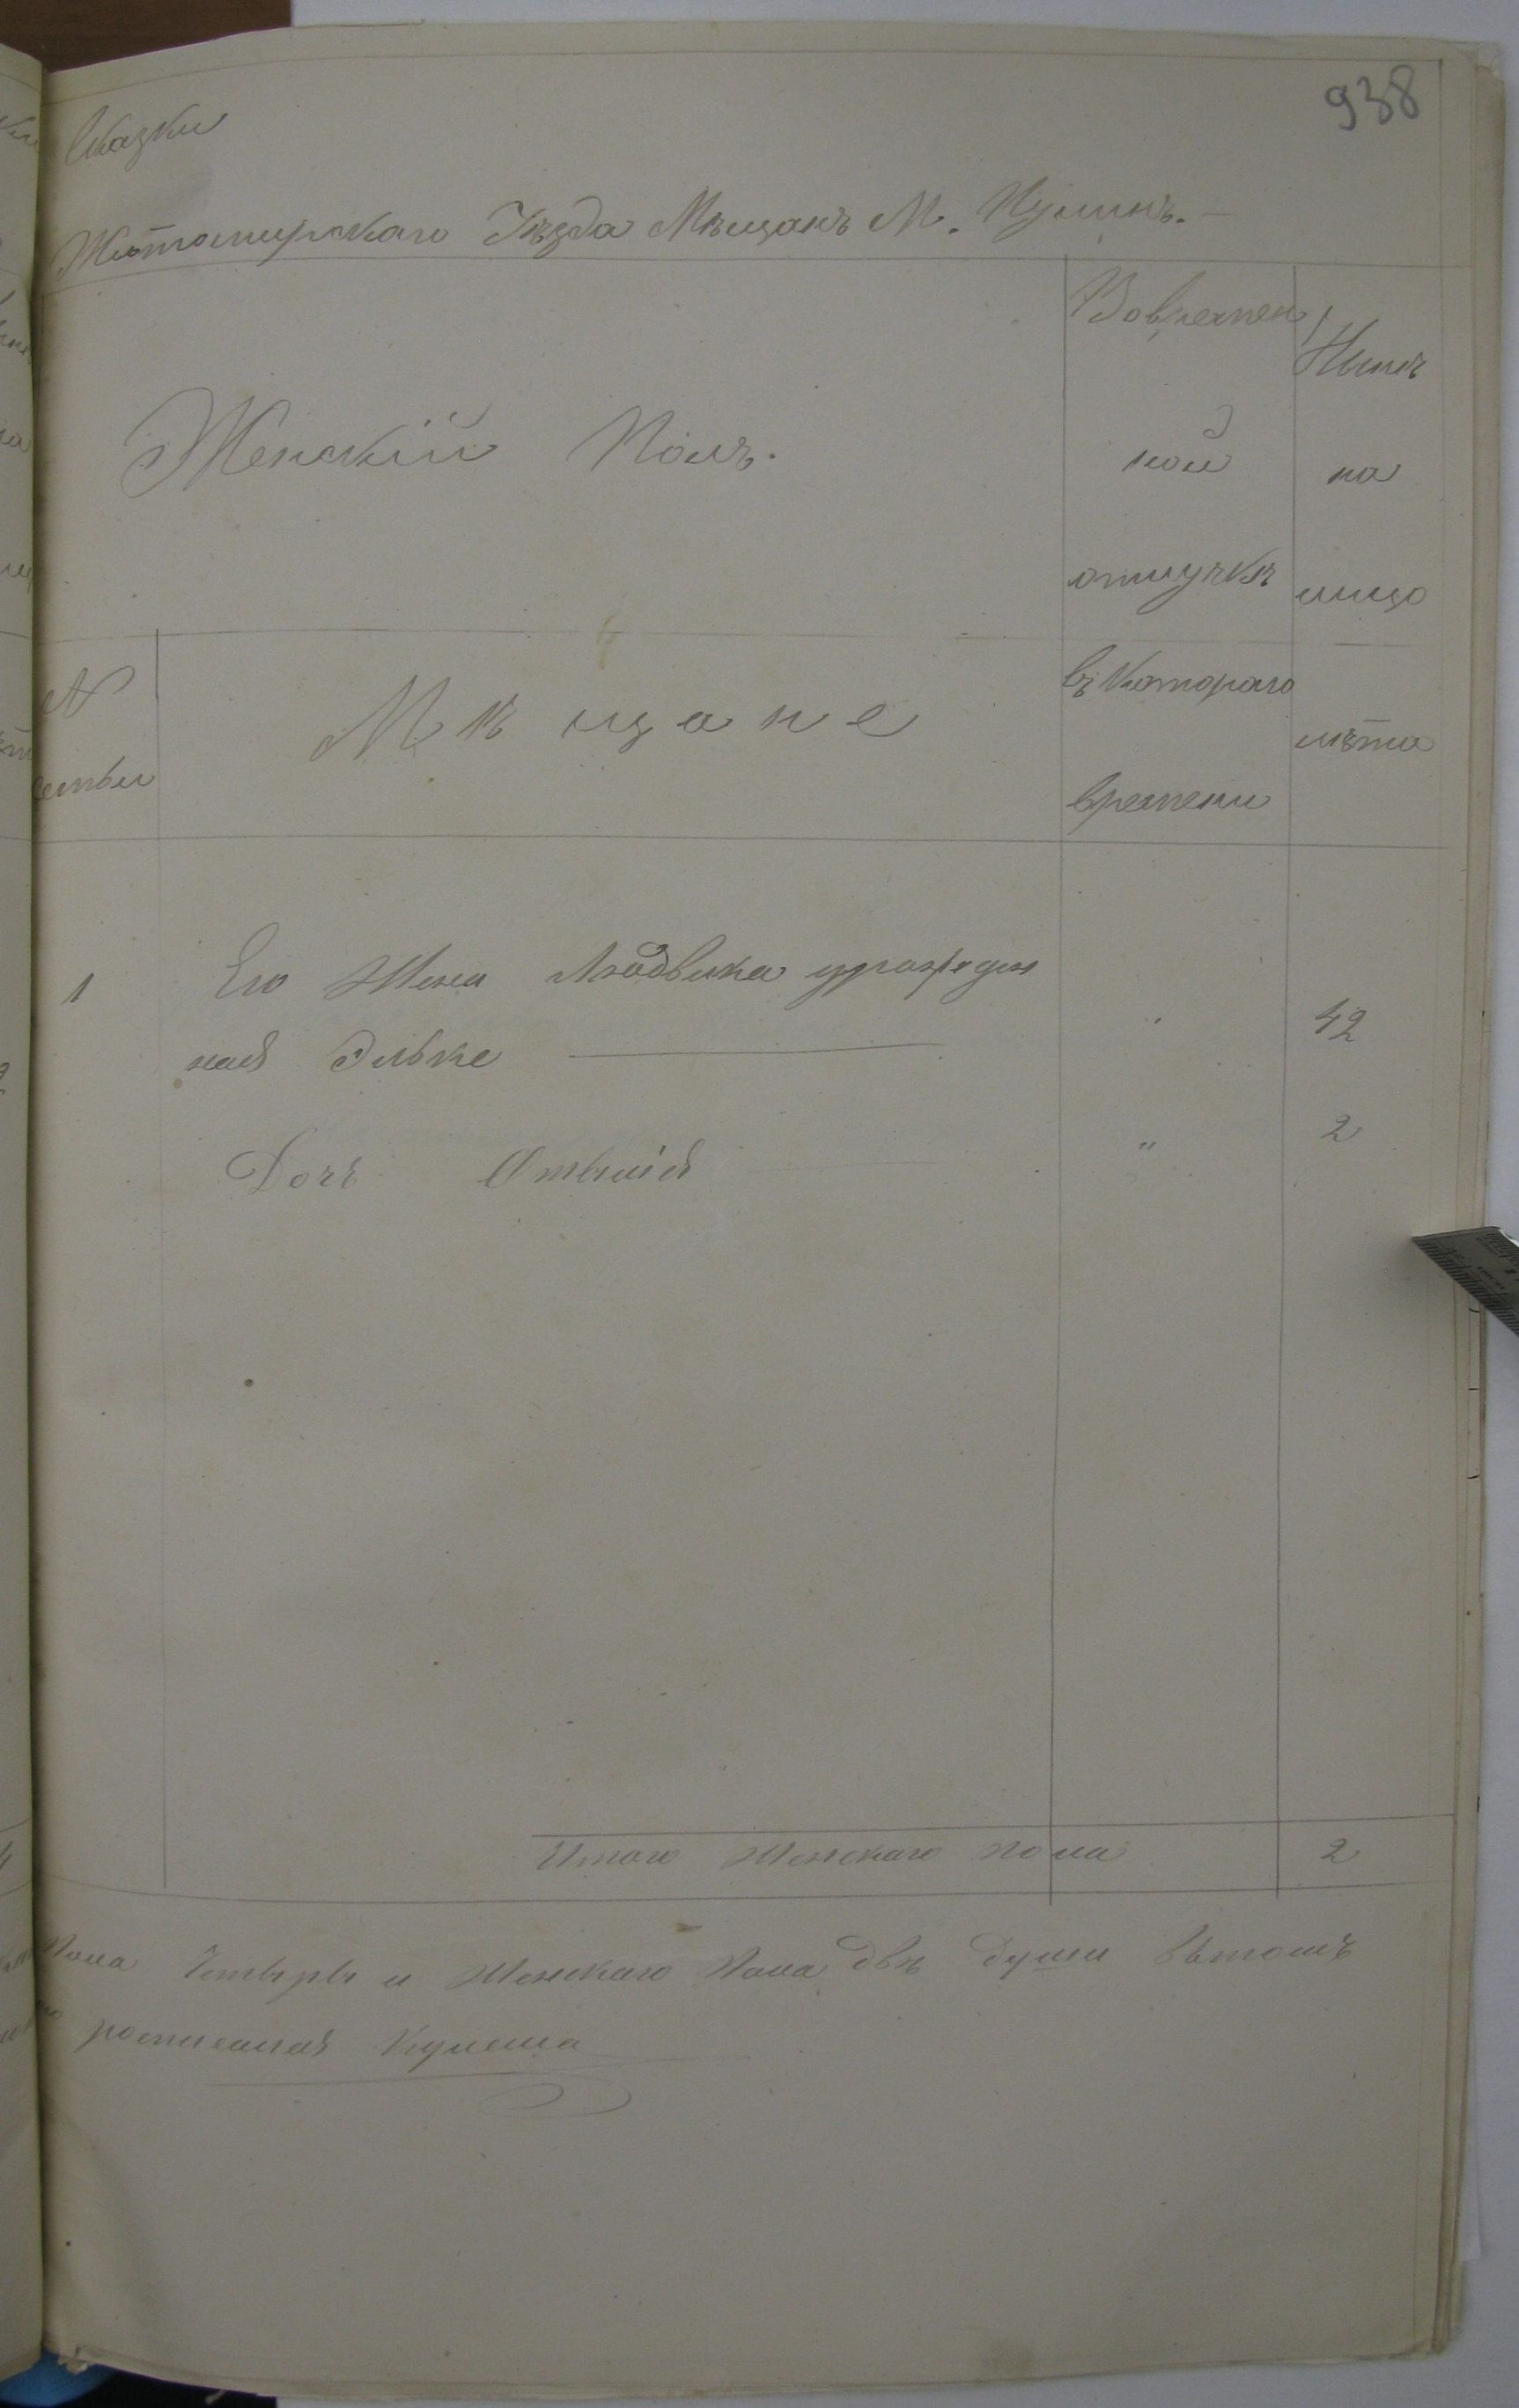 938
Сказки
Житомирского Уѣзда Мѣщанъ М. Пулинъ.
Женскій Полъ.
Вовремен
ной
отлучкѣ
Нынѣ
на
лицо
№
семьи
Мѣщане
въ котораго
времени
лѣта
1 Его Жена Людвика урожден
ная Эльке 42
Дочь Отилія " 2
Итого Женскаго пола 2
Пола Четыре и Женскаго Пола двѣ души вътомъ